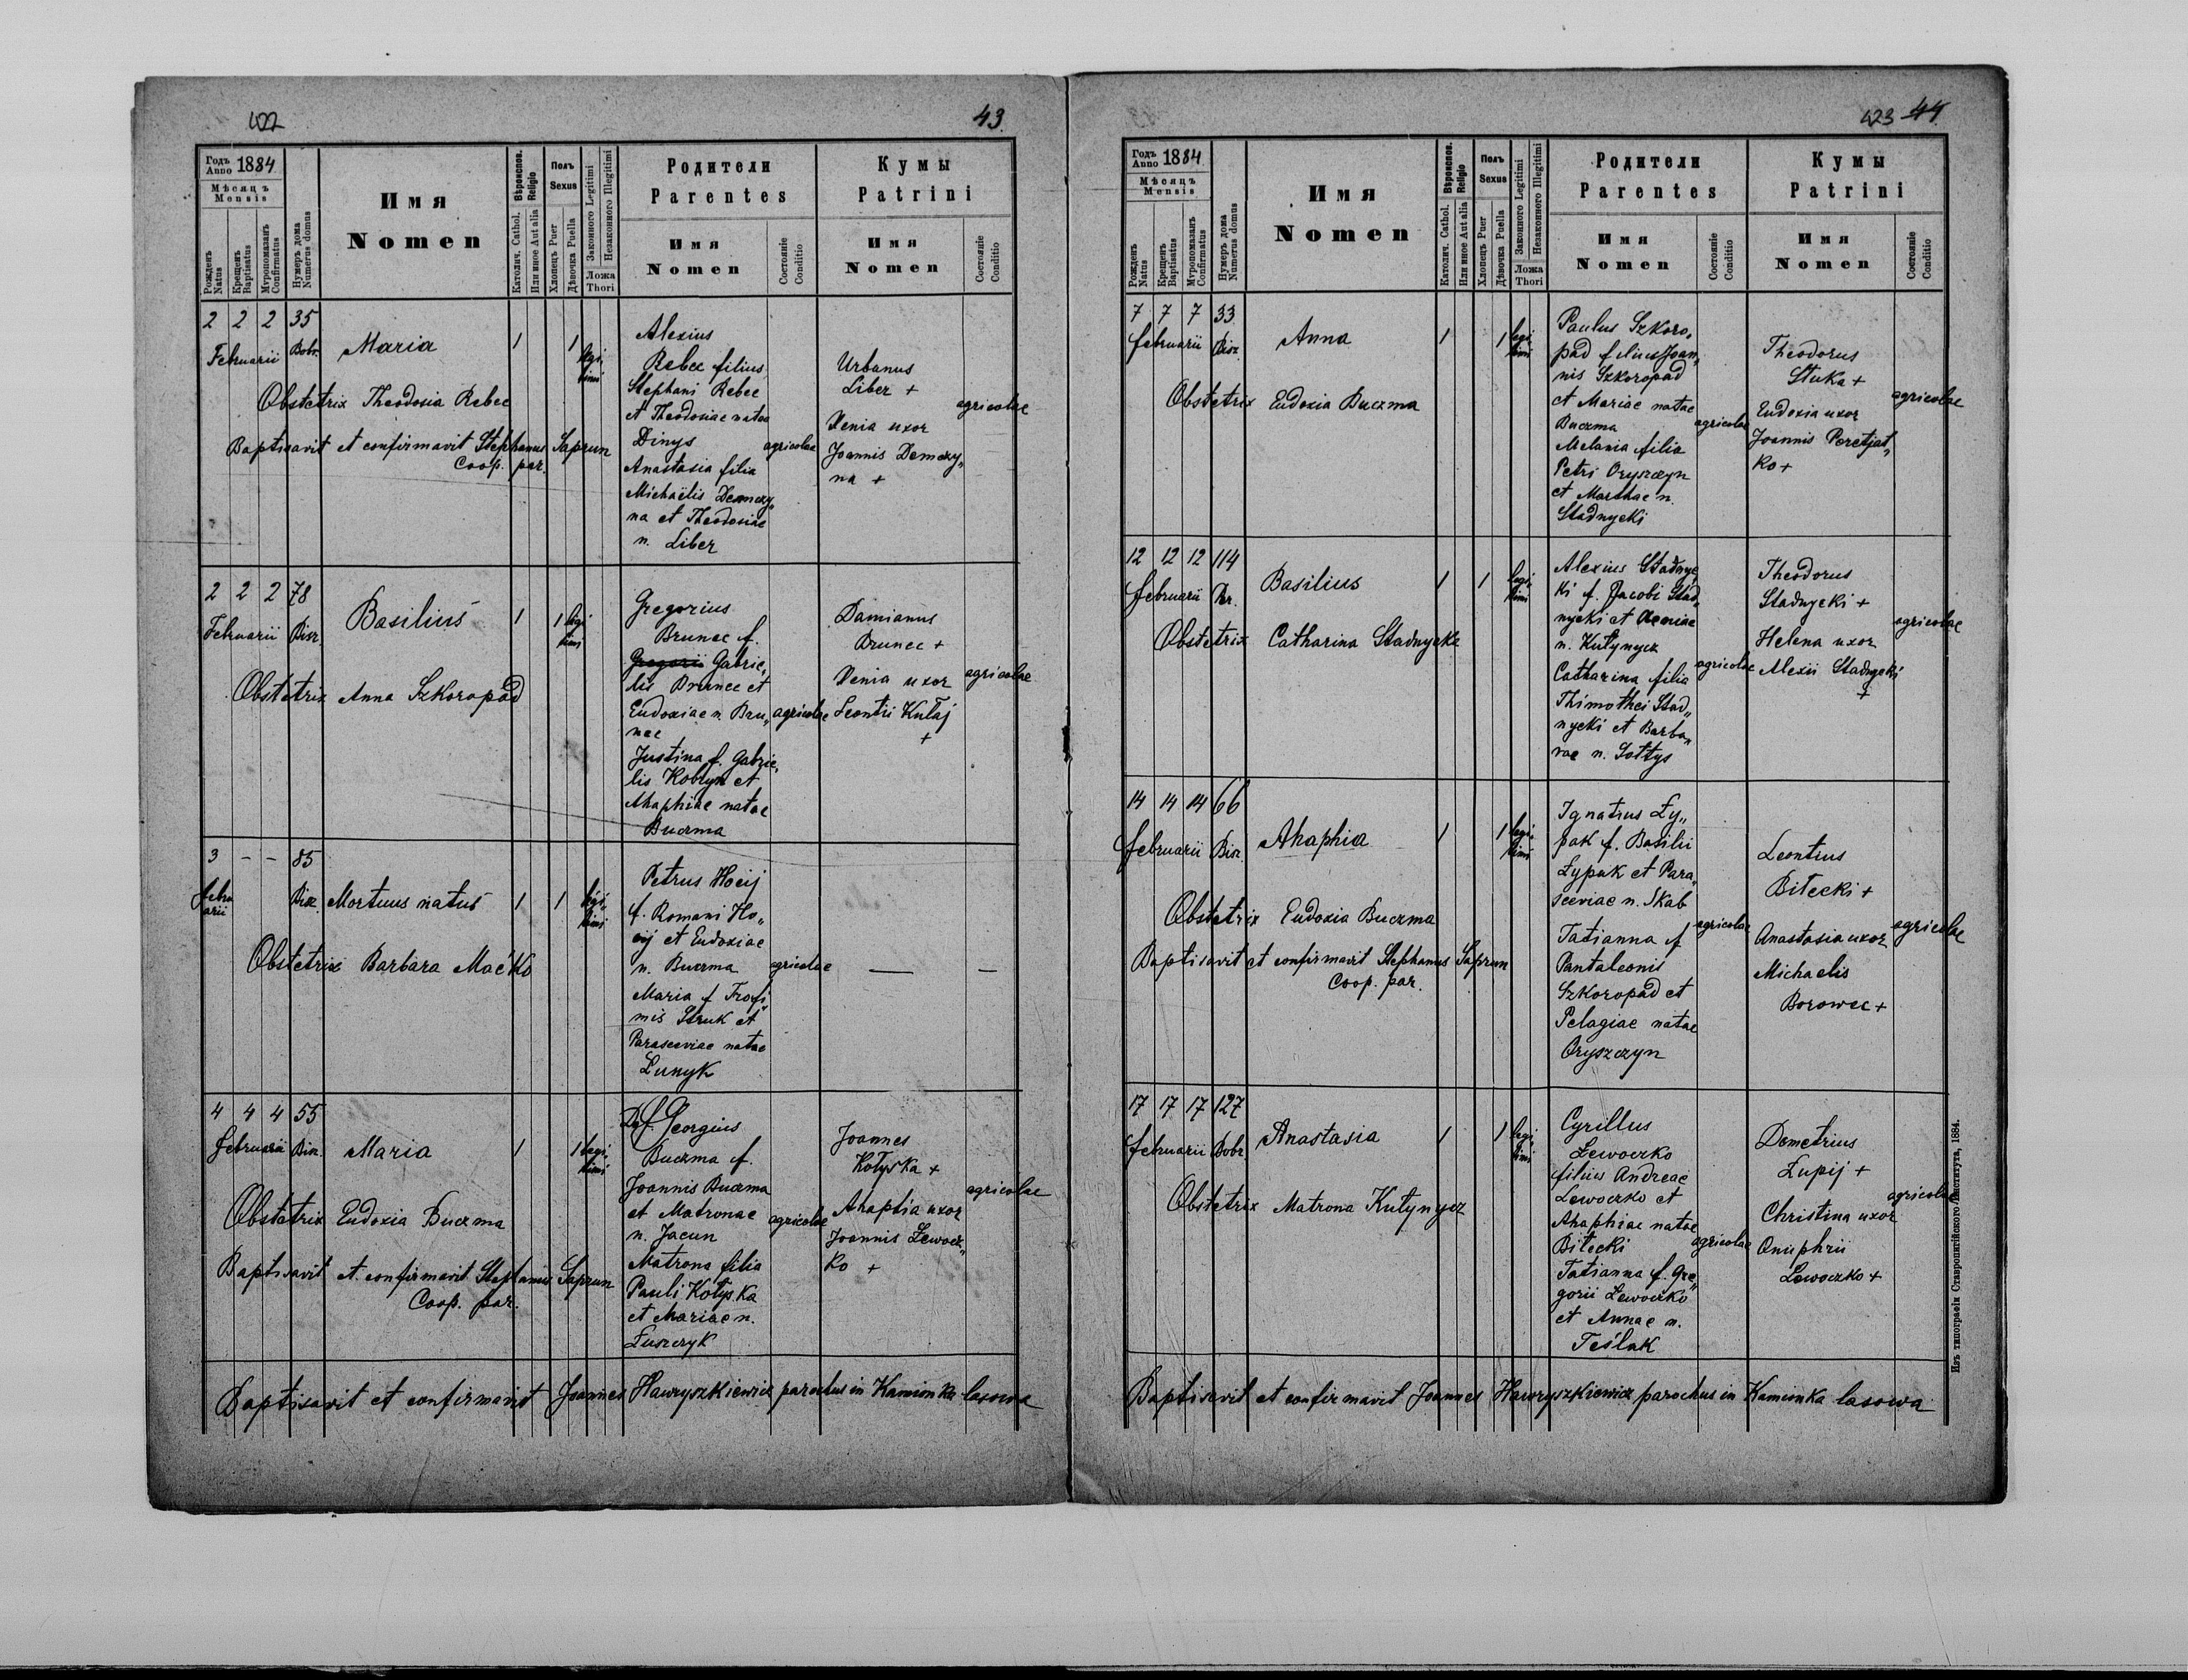 422
43
Годъ Anno 1884
Мѣсяцъ
Mensis
Рожденъ Natus
Крещенъ Baptisatus
Мѵропомазанъ Confirmatus
Нумеръ дома Numerus domus
Имя
Nomen
Вѣроиспов. Religio
Католич. Cathol.
Или иное Aut alia
Полъ
Sexus
Хлопецъ Puer
Дѣвочка Puella
Законного Legitimi
Незаконного Illegitimi
Ложа
Thori
Родители
Parentes
Имя
Nomen
Состояніе Conditio
Кумы
Patrini
Имя
Nomen
Состояніе Conditio
2 2 2 35
Februarii Bobr.
Maria
1 1
legi,
timi
Obstetrix Theodosia Rebec
Baptisavit et confirmavit Stephanus Saprun
Coop. par.
Alexius
Rebec filius
Stephani Rebec
et Theodosiae natae
Dinys
Anastasia filia
Michaëlis Demczy„
na et Theodosiae
n. Liber
agricolae
Urbanus
Liber +
Xenia uxor
Joannis Demczy„
na +
agricolae
2 2 2 78
Februarii Bisz.
Basilius
1 1
legi
timi
Obstetrix Anna Szkoropad
Gregorius
Brunec f.
Gregorii Gabrie,
lis Brunec et
Eudoxiae n. Bru„
nec
Justina f. Gabrie,
lis Kobryn et
Ahaphiae natae
Buczma
agricolae
Damianus
Brunec +
Xenia uxor
Leontii Kułaj
+
agricolae
3 - - 85
Febru
arii
Bisz.
Mortuus natus
1 1
legi,
timi
Obstetrix Barbara Maćko
Petrus Hocij
f. Romani Ho„
cij et Eudoxiae
n. Buczma
Maria f Trofi„
mis Struk et
Parasceviae natae
Łunyk
agricolae
— —
4 4 4 55
Februarii Bisz.
Maria
1 1
legi,
timi
Obstetrix Eudoxia Buczma
Baptisavit et confirmavit Stephanus Saprun
Coop. par.
Georgius
Buczma f.
Joannis Buczma
et Matronae
n. Jacun
Matrona filia
Pauli Kotyska
et Mariae n.
Łuszczyk
agricolae
Joannes
Kotyska +
Ahaptia uxor
Joannis Lewocz„
ko +
agricolae
Baptisavit et confirmavit Joannes Hawryszkiewicz parochus in Kamionka lasowa
423 44
Годъ Anno 1884
Мѣсяцъ
Mensis
Рожденъ Natus
Крещенъ Baptisatus
Мѵропомазанъ Confirmatus
Нумеръ дома Numerus domus
Имя
Nomen
Вѣроиспов. Religio
Католич. Cathol.
Или иное Aut alia
Полъ
Sexus
Хлопецъ Puer
Дѣвочка Puella
Законного Legitimi
Незаконного Illegitimi
Ложа
Thori
Родители
Parentes
Имя
Nomen
Состояніе Conditio
Кумы
Patrini
Имя
Nomen
Состояніе Conditio
7 7 7 33
Februarii Bisz.
Anna
1 1
legi,
timi
Obstetrix Eudoxia Buczma
Paulus Szkoro,
pad filius Joan„
nis Szkoropad
et Mariae natae
Buczma
Melania filia
Petri Oryszczyn
et Marthae n.
Stadnycki
agricolae
Theodorus
Stuka +
Eudoxia uxor
Joannis Peretjat„
ko +
agricolae
12 12 12 114
Februarii
Basilius
1 1
legi,
timi
Obstetrix Catharina Stadnycka
Alexius Stadnyc
ki f. Jacobi Stad„
nycki et Xeniae
n. Kutynycz
Catharina filia
Thimothei Stad„
nycki et Barba„
rae n. Sołtys
agricolae
Theodorus
Stadnycki +
Helena uxor
Alexii Stadnycki
+
agricolae
14 14 14 66
Februarii Bisz.
Ahaphia
1 1
legi,
timi
Obstetrix Eudoxia Buczma
Baptisavit et confirmavit Stephanus Saprun
Coop. par.
Ignatius Ły„
pak f. Basilii
Łypak et Para„
sceviae n. Skab
Tatianna f
Pantaleonis
Szkoropad et
Pelagiae natae
Oryszczyn
agricolae
Leontius
Biłecki +
Anastasia uxor
Michaelis
Borowec +
agricolae
17 17 17 127
Februarii Bobr.
Anastasia
1 1
legi,
timi
Obstetrix Matrona Kutynycz
Cyrillus
Lewoczko
filius Andreae
Lewoczko et
Ahaphiae natae
Biłecki
Tatianna f. Gre„
gorii Lewoczko
et Annae n.
Teślak
agricolae
Demetrius
Łupij +
Christina uxor
Onuphrii
Lewoczko +
agricolae
Baptisavit et confirmavit Joannes Hawryszkiewicz parochus in Kamionka lasowa
Изъ типографіи Ставропигійского Института, 1884.